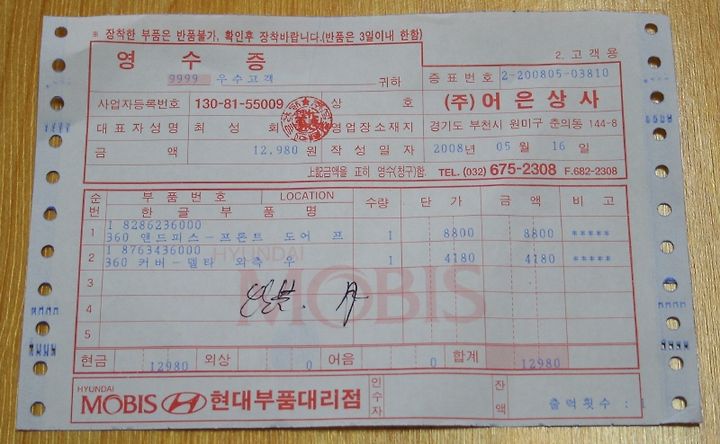 ※ 장착한 부품은 반품불가, 확인후 장착바랍니다.(반품은 3일이내 한함)
영 수 증
2. 고객용
9999 우수고객 귀하
증표번호 2-200805-03810
사업자등록번호 130-81-55009 상 호 (주) 어은상사
대표자성명 최성회 영업장소재지 경기도 부천시 원미구 춘의동 144-8
금 액 12,980 원 작성일자 2008년 05월 16일
上記금액을 표히 영수(청구)함 TEL. (032) 675-2308 F.682-2308
순번 부품번호 LOCATION 수량 단가 금액 비고
한글부품명
1 1 8286236000
360 앤드피스-프론트 도어 프 1 8800 8800 *****
2 1 8763436000
360 커버-델타 외측 우 1 4180 4180 *****
3
4
5
HYUNDAI
MOBIS
현금 12980 외상 0 어음 0 합계 12980
HYUNDAI
MOBIS 현대부품대리점 인수자 잔액 출력횟수 : 1